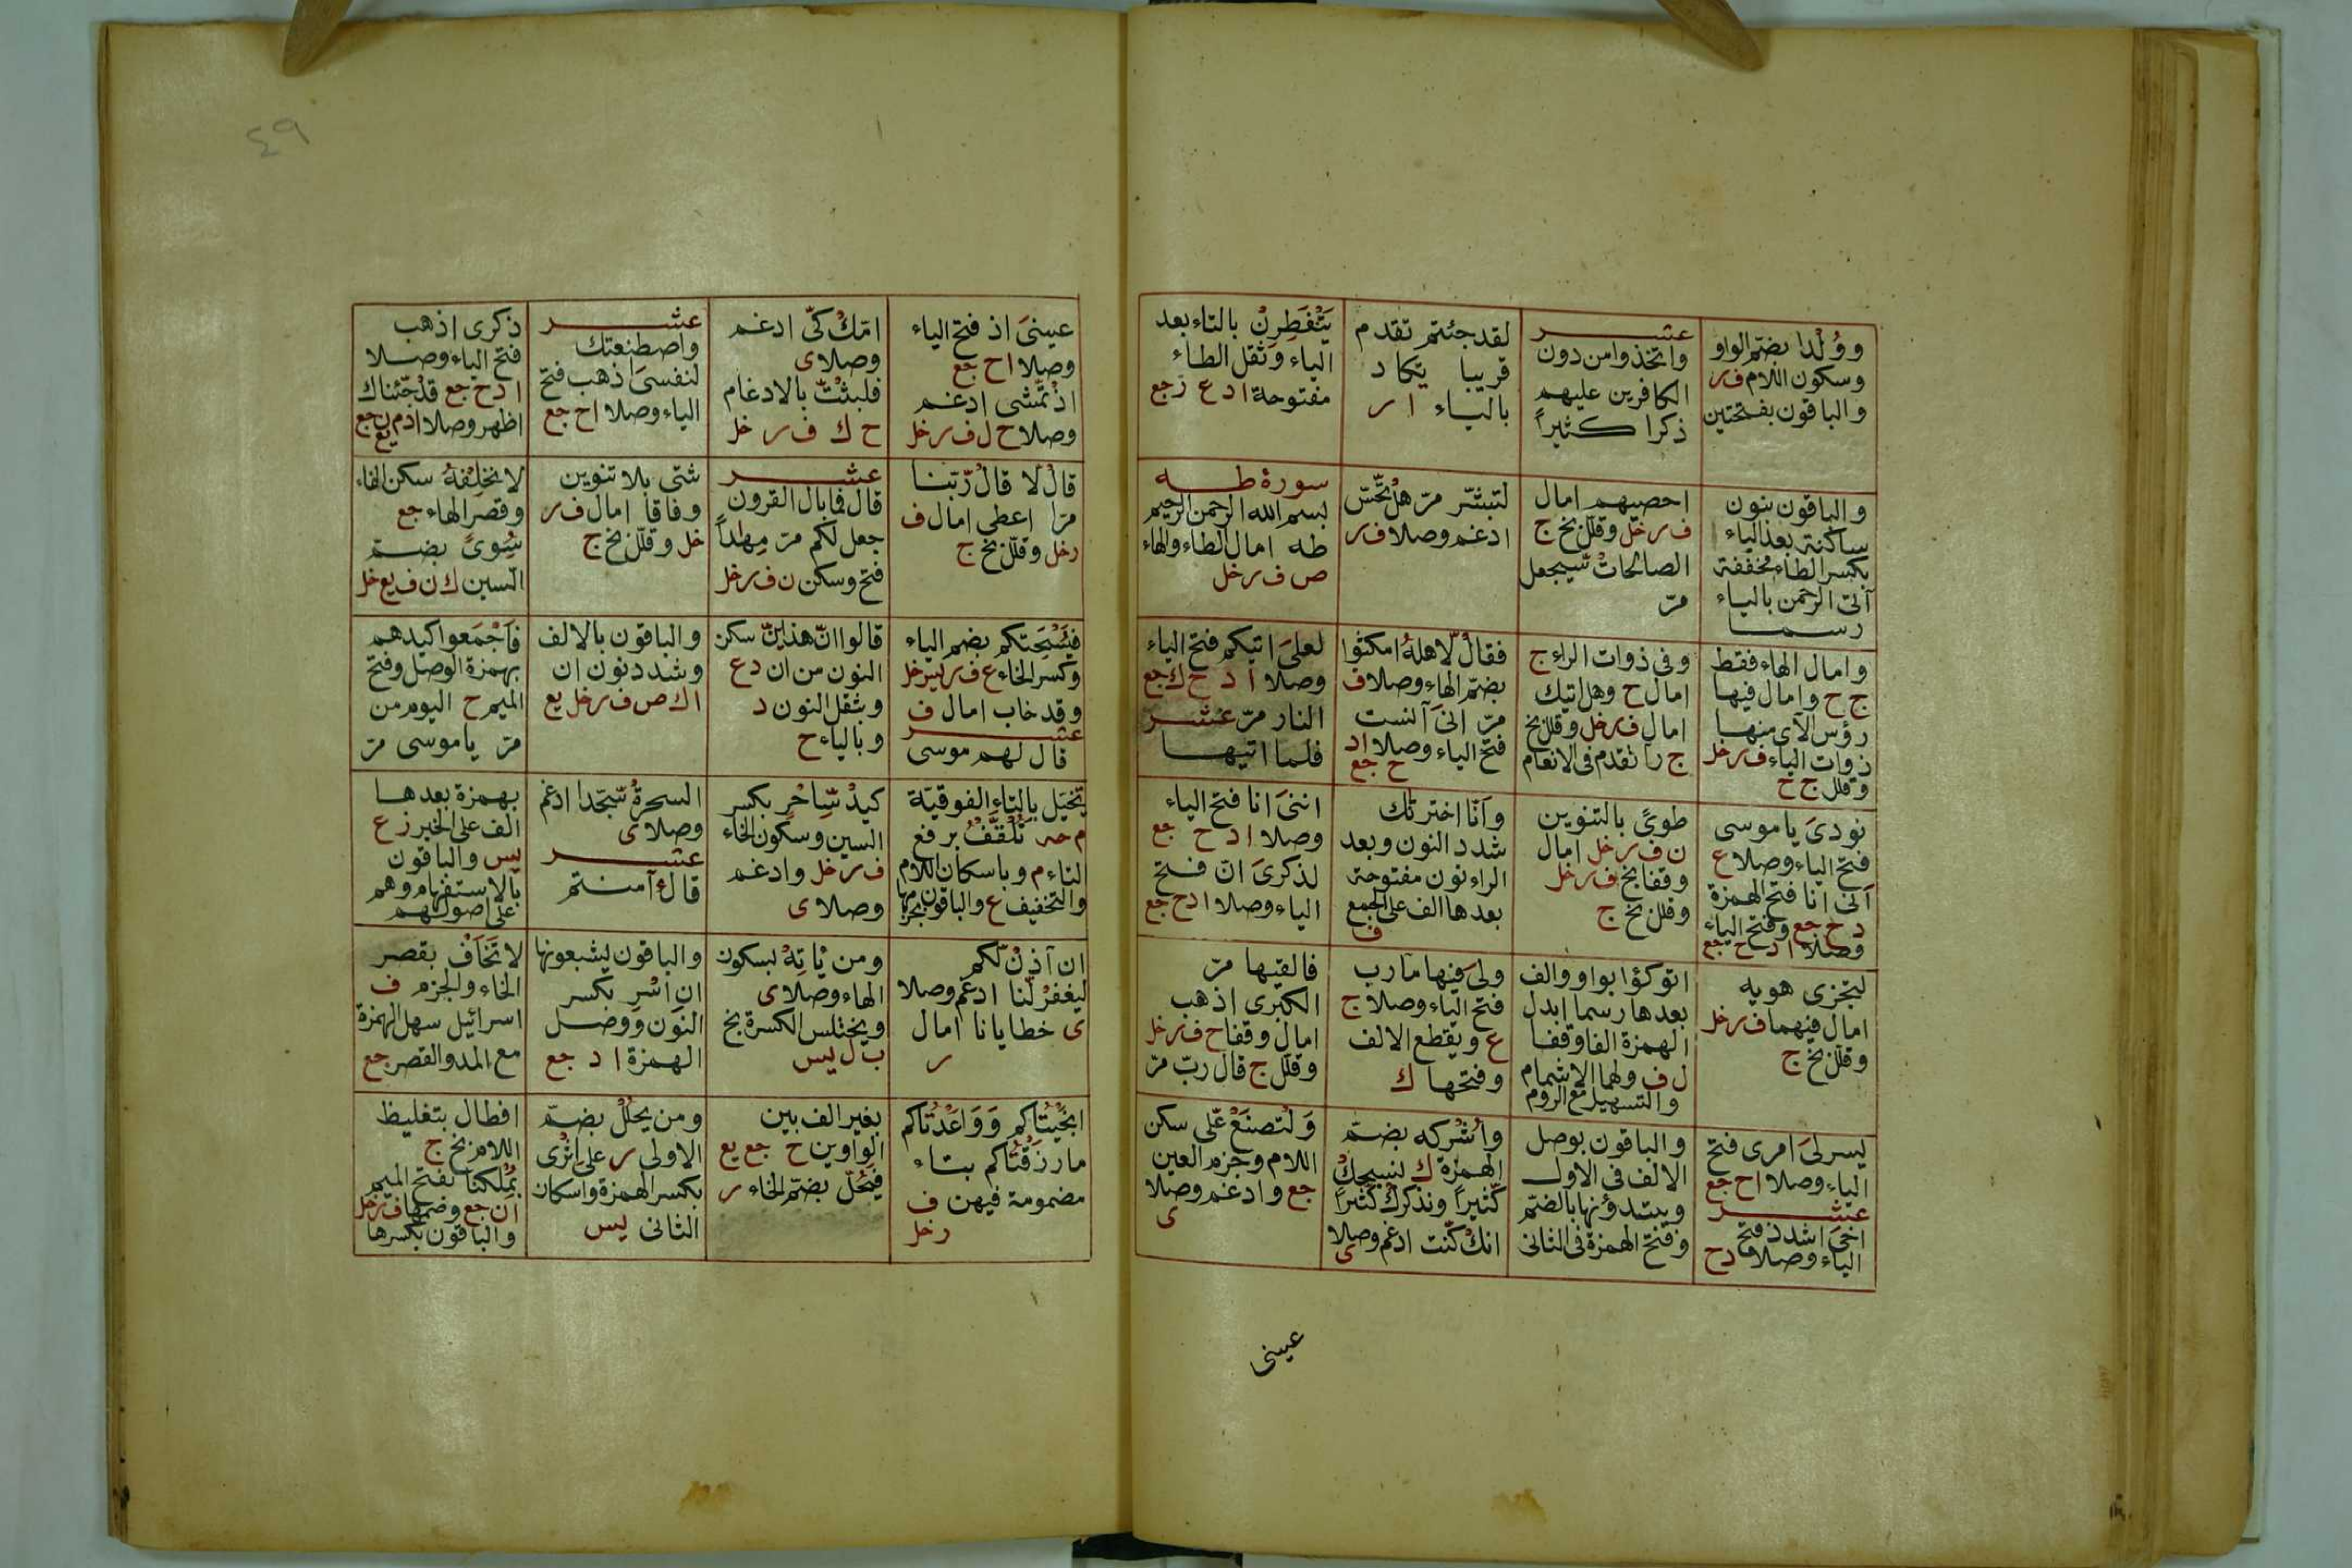 وَوُلْدا بضمّ الواو
وسكون اللام ف ر
والباقون بفتحتين
عشر
واتخذوا من دون
الكافرين عليهم
ذكرا كثيراً
لقد جئتم تقدم
قريبا يكاد
بالياء ا ر
يَتَفَطَّرن بالتاء بعد
الياء وثقل الطاء
مفتوحة ا د ع ز جع
والباقون بنون
ساكنة بعد الياء
بكسر الطاء مخففة
آتى الرحمن بالياء
رسما
احصيهم امال
ف ر خل وقلل بخ ج
الصالحات سيجعل
مرّ
لتبشّر مرّ هل تحّسّ
ادغم وصلا ف ر
سورة طه
بسم الله الرحمن الرحيم
طه امال الطاء والهاء
ص ف ر خل
وامال الهاء فقط
ج ح وامال فيها
رؤس الآى منها
ذوات الياء ف ر خل
وقلل ج ح
وفى ذوات الراء ج
امال ح وهل اتيك
امال ف ر خل وقلل بخ
ج رأ تقدم فى الانعام
فقال لاهله امكثوا
بضمّ الهاء وصلا ف
مرّ انىَ آنست
فتح الياء وصلا ا د
ح جع
لعلىَ اتيكم فتح الياء
وصلا ا د ح ك جع
النار مرّ عشر
فلما اتيها
نودىَ يا موسى
فتح الياء وصلا ع
أنى انا فتح الهمزة
د ح جع وفتح الياء
وصلا ا د ح جع
طوىً بالتنوين
ن ف ر خل امال
وقفا بخ ف ر خل
وقلل بخ ج
وأنّا اخترناك
شدد النون وبعد
الراء نون مفتوحة
بعدها الف على الجمع
ف
اننىَ انا فتح الياء
وصلا ا د ح جع
لذكرىَ انّ فتح
الياء وصلا ا د ح جع
لتجزى هويه
امال فيهما ف ر خل
وقلل بخ ج
اتوكؤا بواو والف
بعدها رسما ابدل
الهمزة الفا وقفا
ل ف ولهما الاشمام
والتسهيل مع الروم
ولىَ فيها مارب
فتح الياء وصلا ج
ع ويقطع الالف
وفتحها ك
فالقيها مرّ
الكبرى اذهب
امال وقفا ح ف ر خل
وقلل ج قال ربّ مرّ
يسرلىَ امرى فتح
الياء وصلا ا ح جع
عشر
اخىَ اشدد فتح
الياء وصلا د ح
والباقون بوصل
الالف فى الاول
ويبتدؤنها بالضمّ
وفتح الهمزة فى الثانى
وأُشركه بضمّ
الهمزة ك لنسبحك
كّثيراً ونذكرك كّثيراً
انك كّنت ادغم وصلا
ى
وَلْتصنَعْ عّلى سكن
اللام وجزم العين
جع وادغم وصلا
ى
عينى
٤٩
عينىَ اذ فتح الياء
وصلا ا ح جع
اذ تّمشى ادغم
وصلا ح ل ف ر خل
امّك كّى ادغم
وصلا ى
فلبثْتّ بالادغام
ح ك ف ر خل
عشر
واصطنعتك
لنفسىَ اذهب فتح
الياء وصلا ا ح جع
ذكرى اذهب
فتح الياء وصلا
ا د ح جع قد جّئناك
اظهر وصلا ا د م ن جع
يع
قال لا قال رّبنا
مرّا اعطى امال ف
ر خل وقلل بخ ج
عشر
قال فما بال القرون
جعل لكم مرّ مهداً
فتح وسكن ن ف ر خل
شتى بلا تنوين
وفاقا امال ف ر
خل وقلل بخ ج
لا نخلفْهُ سكن الفاء
وقصر الهاء جع
سُوىً بضمّ
السين ك ن ف يع خل
فيُسْحِتكم بضم الياء
وكسر الحاء ع ف ر يس خل
وقد خاب امال ف
عشر
قال لهم موسى
قالوا انّ هذاينّ سكن
النون من ان د ع
وبثقل النون د
وبالياء ح
والباقون بالالف
وشدد نون ان
ا ك ص ف ر خل يع
فاَجْمَعوا كيدهم
بهمزة الوصل وفتح
الميم ح اليوم من
مرّ يا موسى مرّ
يتخيّل بالتاء الفوقيّة
م حه تَلْقَّفُ برفع
الفاء م وباسكان اللام
والتخفيف ع والباقون بجزمها
كيدُ سِّحْرٍ بكسر
السين وسكون الحاء
ف ر خل وادغم
وصلا ى
السحرةُ سّجّدا ادغم
وصلا ى
عشر
قال ءآمنتم
بهمزة بعدها
الف على الخبر ز ع
يس والباقون
بالاستفهام وهم
على اصولهم
ان آذن لّكم
ليغفر لّنا ادغم وصلا
ى خطايانا امال
ر
ومن يّاتهْ بسكون
الهاء وصلا ى
ويختلس الكسرة بخ
ب ل يس
والباقون يشبعونها
انِ اسْرِ بكسر
النون ووصل
الهمزة ا د جع
لا تَخَفْ بقصر
الخاء والجزم ف
اسرائيل سهل الهمزة
مع المد والقصر جع
انجَيْتُكم وَوَاعَدْتُكم
ما رزقْتُكم بتاء
مضمومة فيهن ف
ر خل
بغير الف بين
الواوين ح جع يع
فيَحُلّ بضمّ الحاء ر
ومن يحلُلْ بضمّ
الاولى ر على اِثْرى
بكسر الهمزة واسكان
الثانى يس
افطال بتغليظ
اللام بخ ج
بمَلكنا بفتح الميم
ا ن جع وضمها ف ر خل
والباقون بكسرها